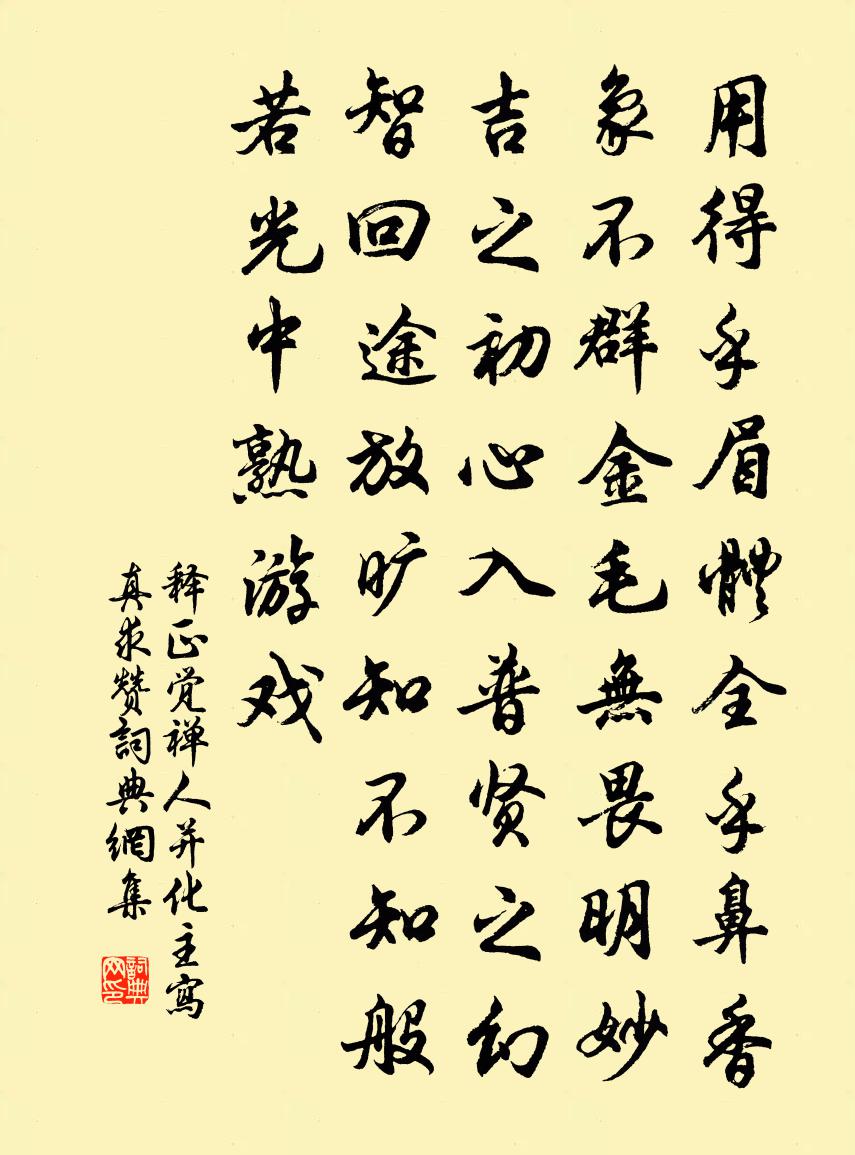 用得乎眉體全乎鼻香
象不群金毛無畏明妙
吉之初心入普贤之幻
智回途放旷知不知般
若光中熟游戏
释正觉禅人并化主寫
真求赞詞典網集
詞典网印